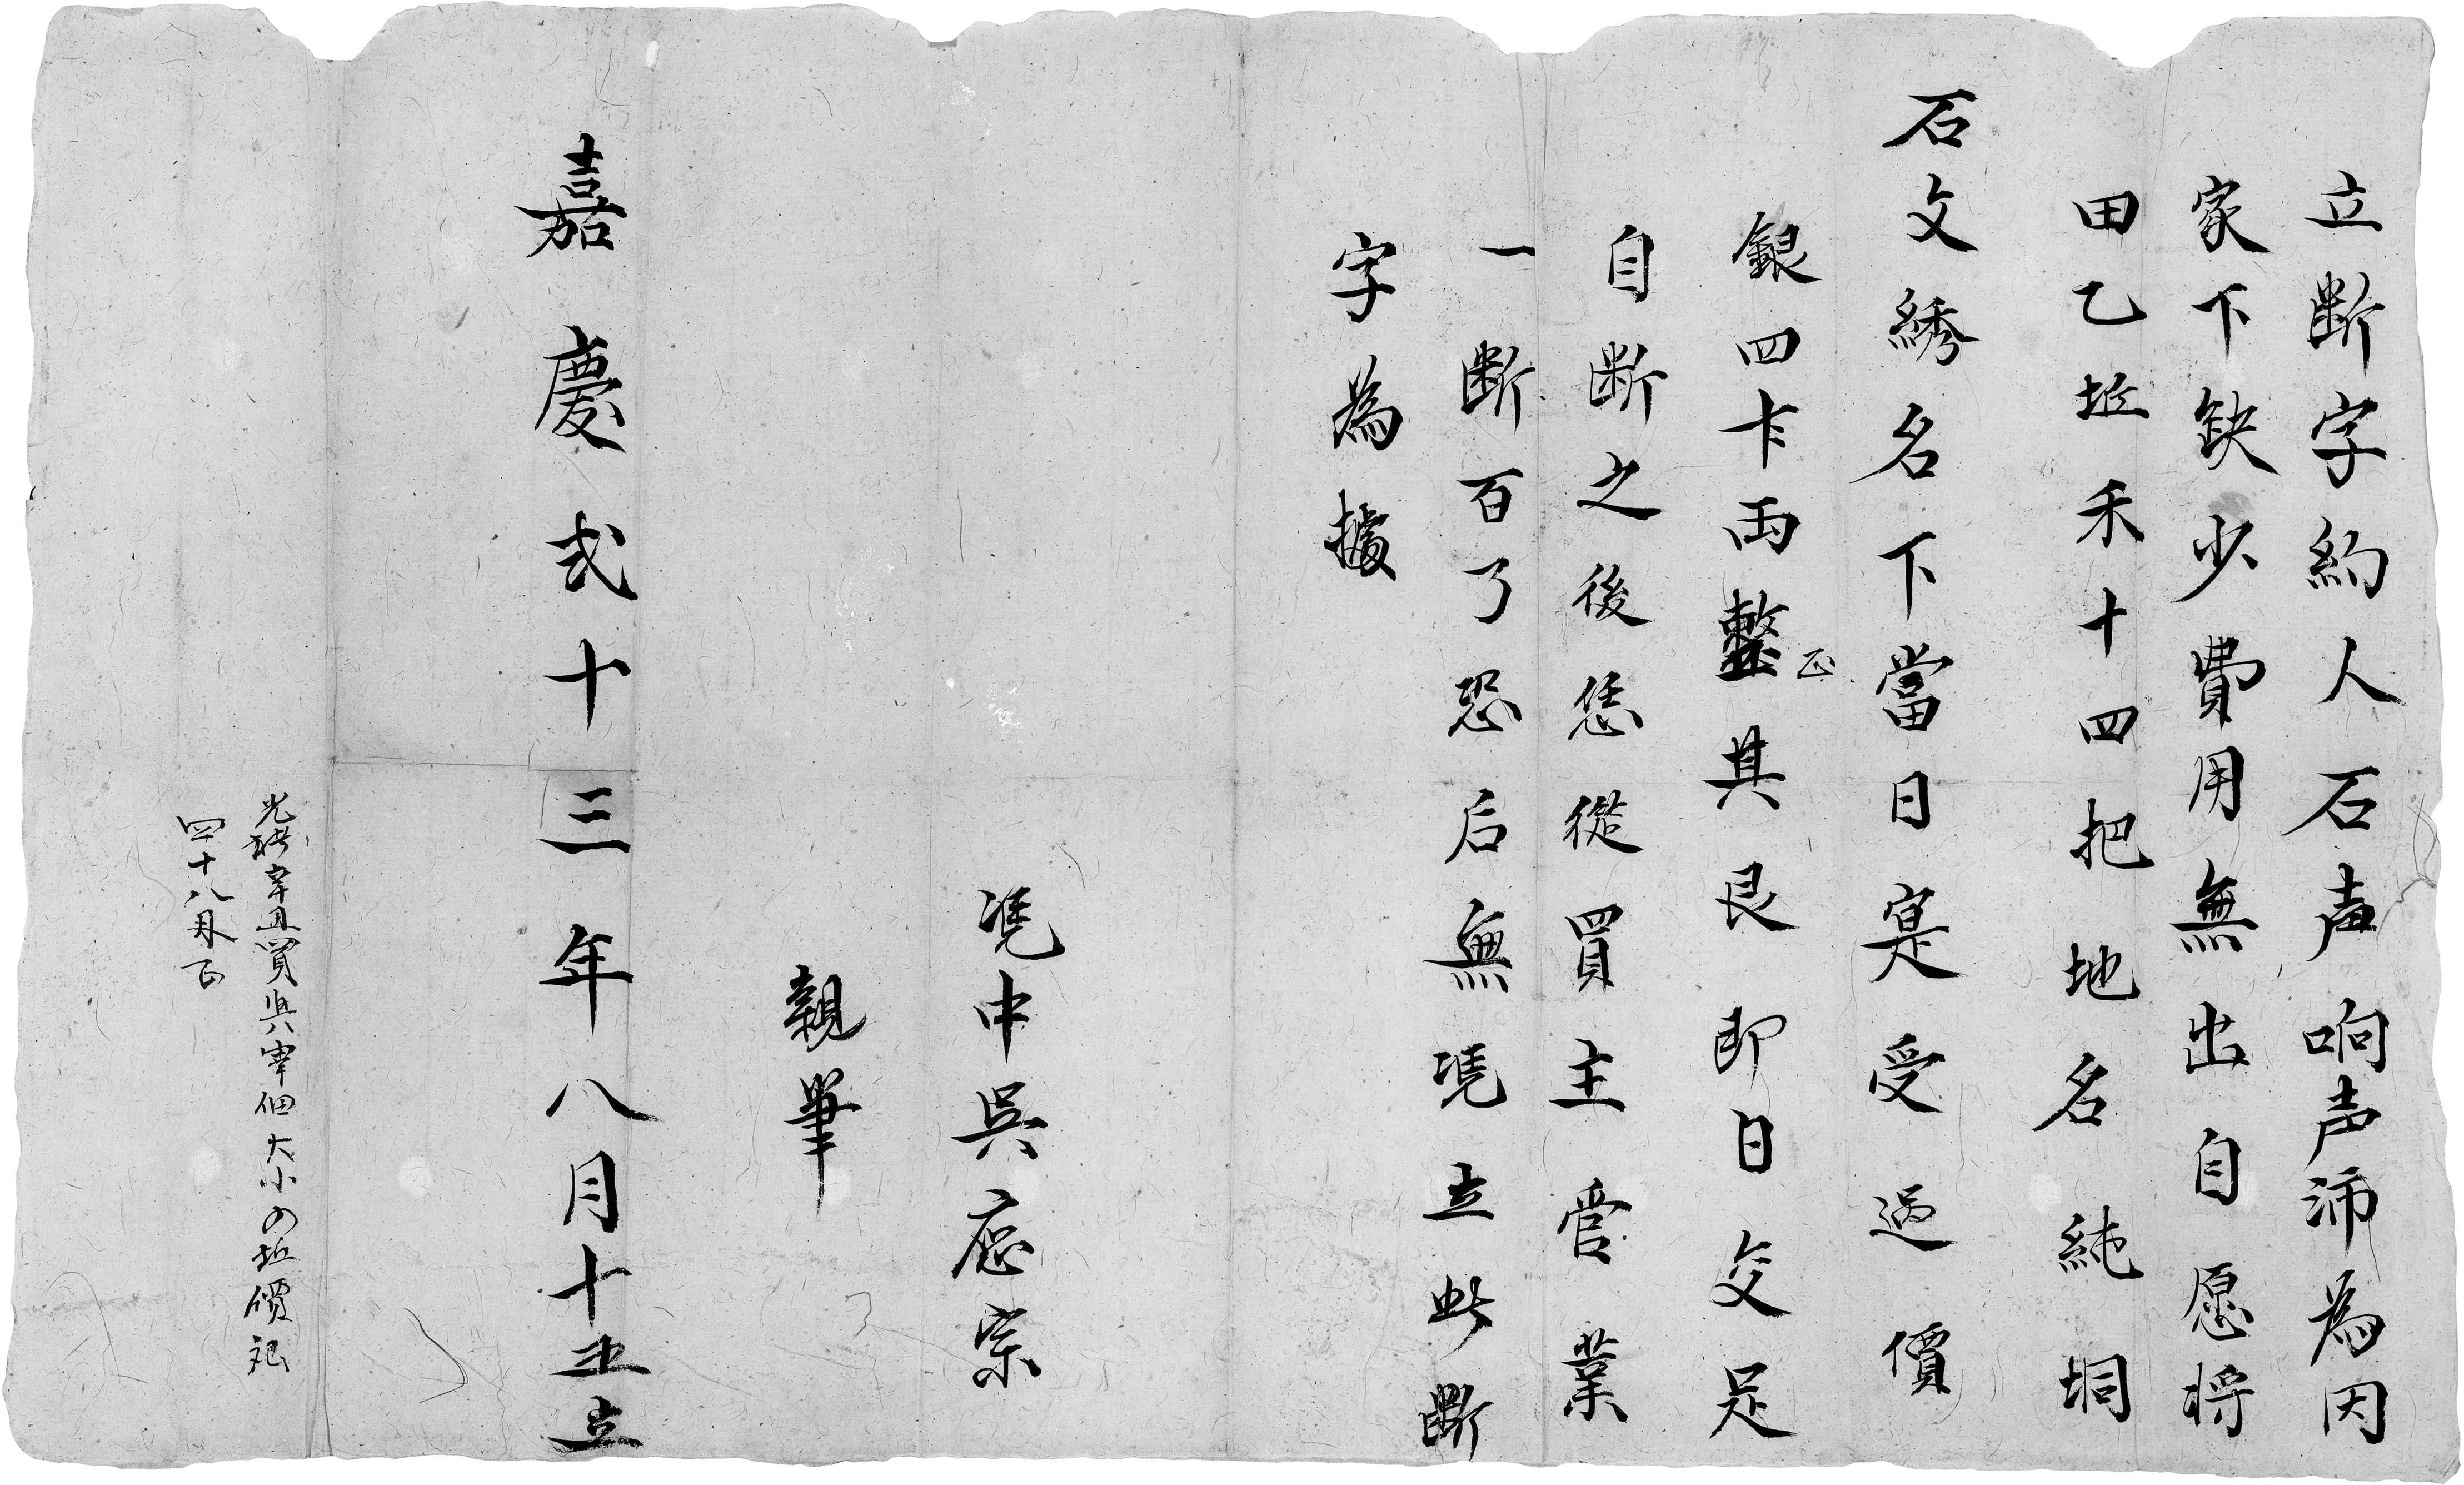 立断字約人石声响声沛為因
家下缺少費用無出自愿將
田乙坵禾十四把地名純垌
石文綉名下當日寔受過價
銀四卡両整正其艮即日交足
自断之後恁從買主管業
一断百了恐后無凴立此断
字為據
凴中吳应宗
親筆
嘉慶弍十三年八月十五立
光緒辛丑買與寧佃大小四坵價艮
四十八両正